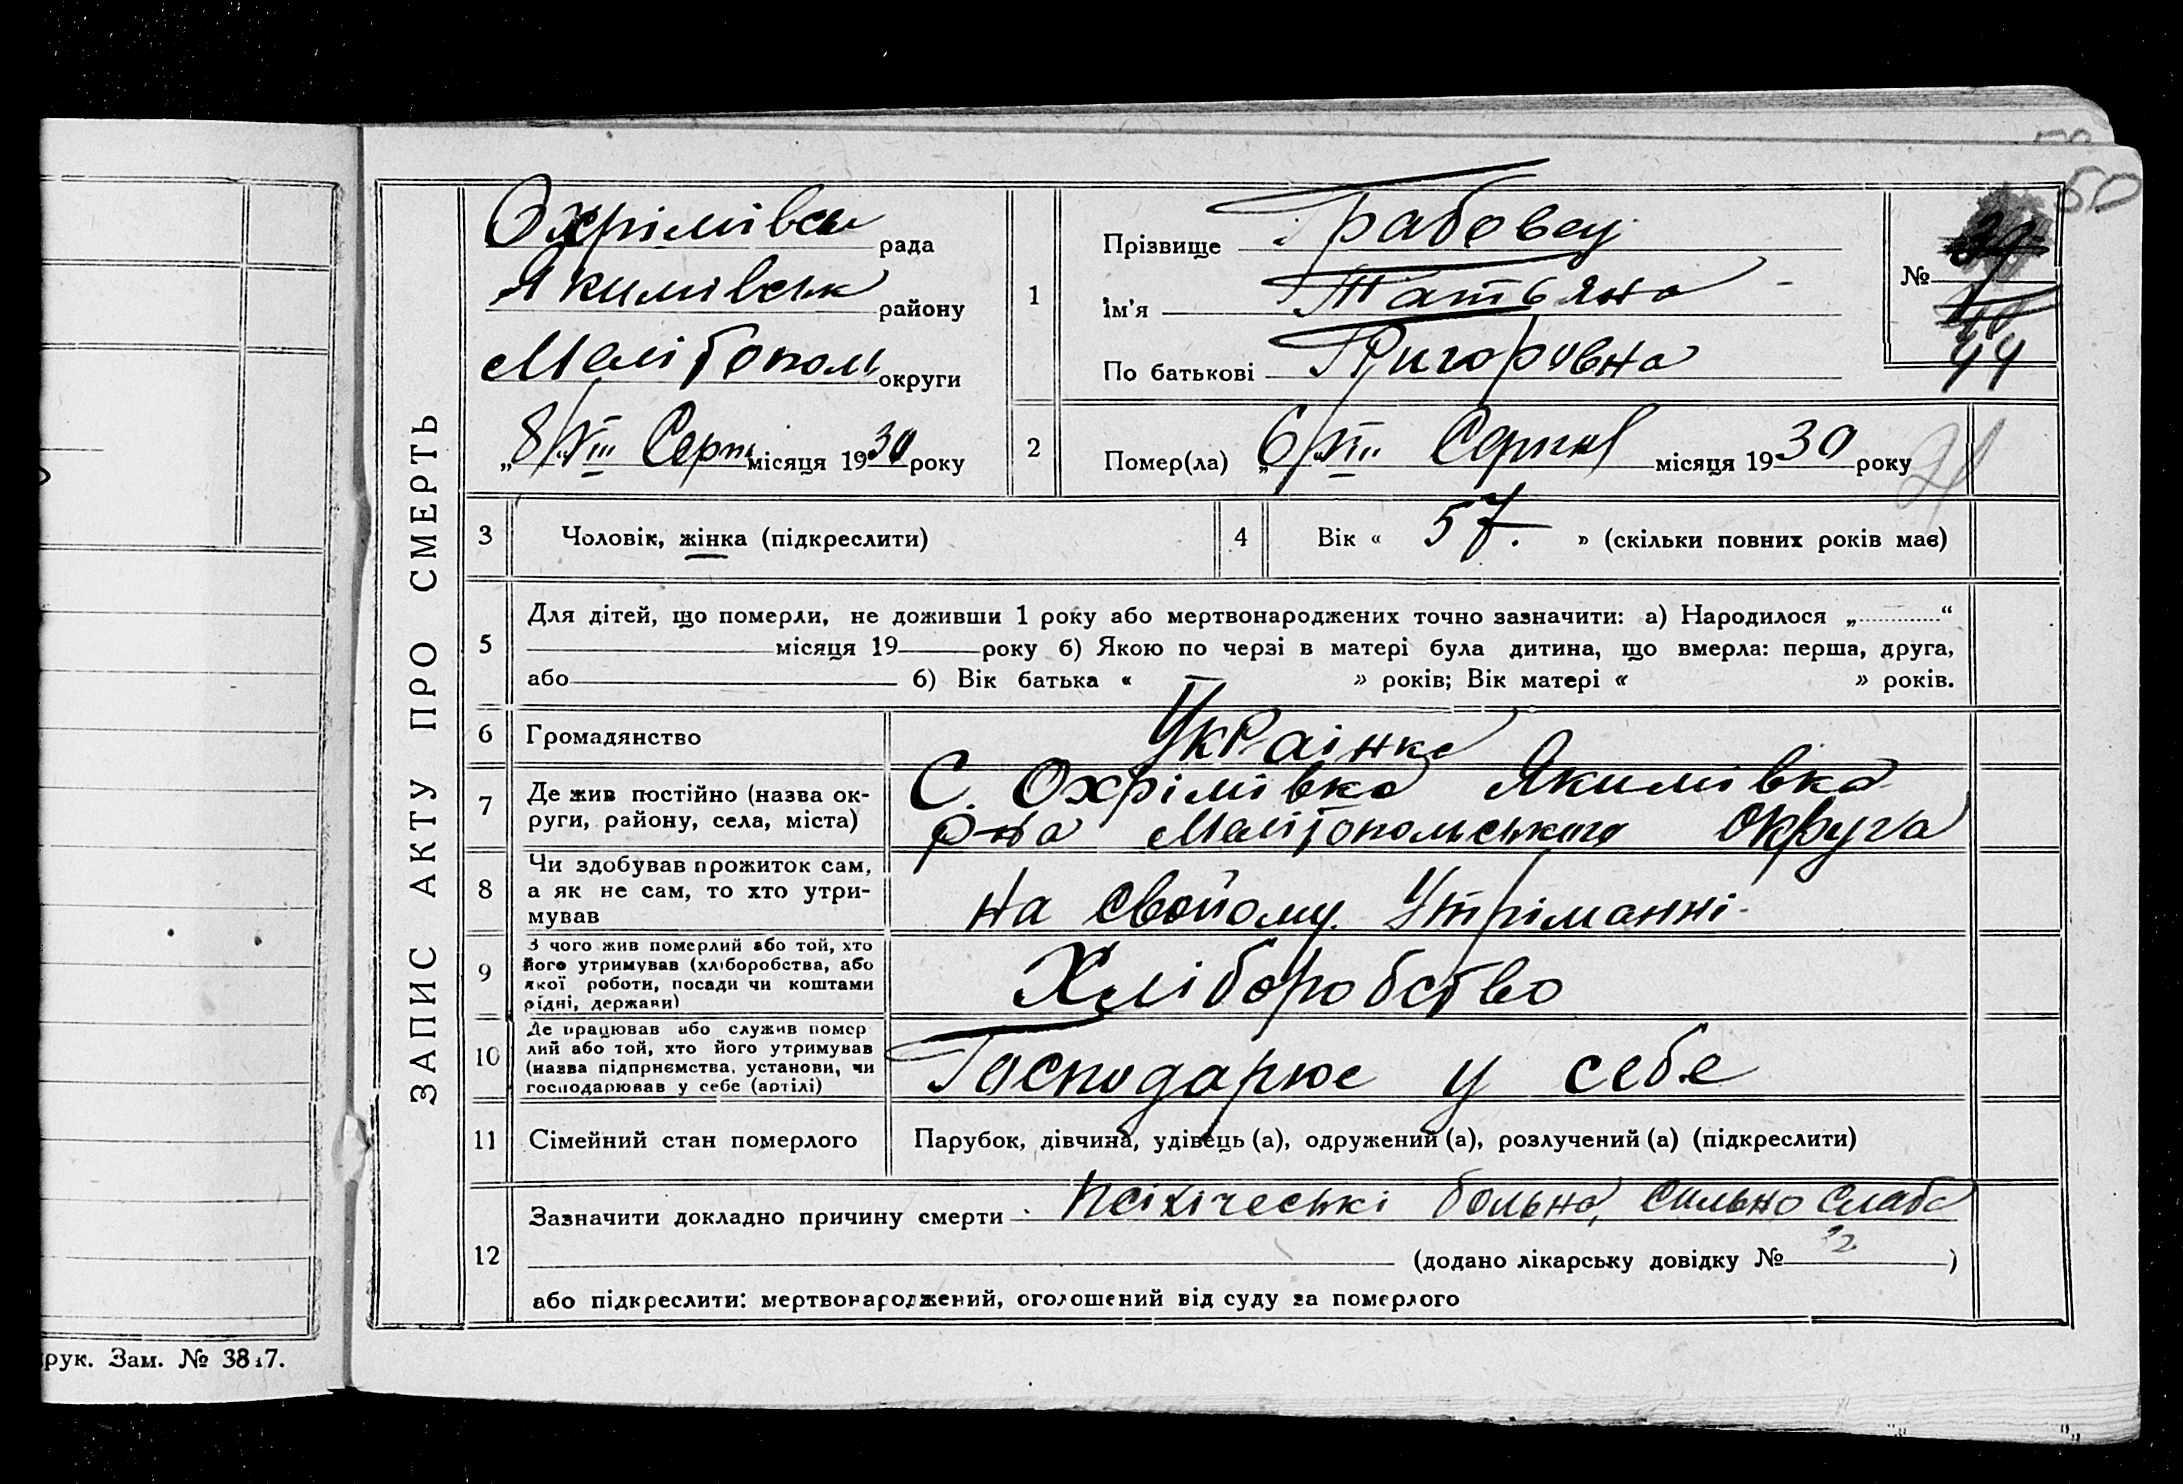 50
ЗАПИС АКТУ ПРО СМЕРТЬ
Охрімівськ рада
Якимівськ району
Мелітополь округи
„8/VIII Серп місяця 1930 року
1
Прізвище Грабовец
Ім'я Татьяна
По батькові Григоровна
№
44
2
Помер(ла) „6/VIII Серпня місяця 1930 року
21
3 Чоловік, жінка (підкреслити)
4 Вік « 57. » (скільки повних років має)
5
Для дітей, що померли, не доживши 1 року або мертвонароджених точно зазначити: а) Народилося „ “
місяця 19 року б) Якою по черзі в матері була дитина, що вмерла: перша, друга,
або б) Вік батька « — » років; Вік матері « » років.
6 Громадянство Украінка
7 Де жив постійно (назва ок-
руги, району, села, міста)
С. Охрімівка Якимівка
р-на Мелітопольського Округа
8 Чи здобував прожиток сам,
а як не сам, то хто утри-
мував
на свойому утріманні.
9 З чого жив померлий або той, хто
його утримував (хліборобства, або
якої роботи, посади чи коштами
рідні, держави)
Хліборобство
10 Де працював або служив помер
лий або той, хто його утримував
(назва підприємства, установи, чи
господарював у себе (артілі)
Господарює у себе
11 Сімейний стан померлого
Парубок, дівчина, удівець (а), одружений (а), розлучений (а) (підкреслити)
12
Зазначити докладно причину смерти псіхіческі больна, сильно слаба
(додано лікарську довідку № )
або підкреслити: мертвонароджений, оголошений від суду за померлого
рук. Зам. № 3817.